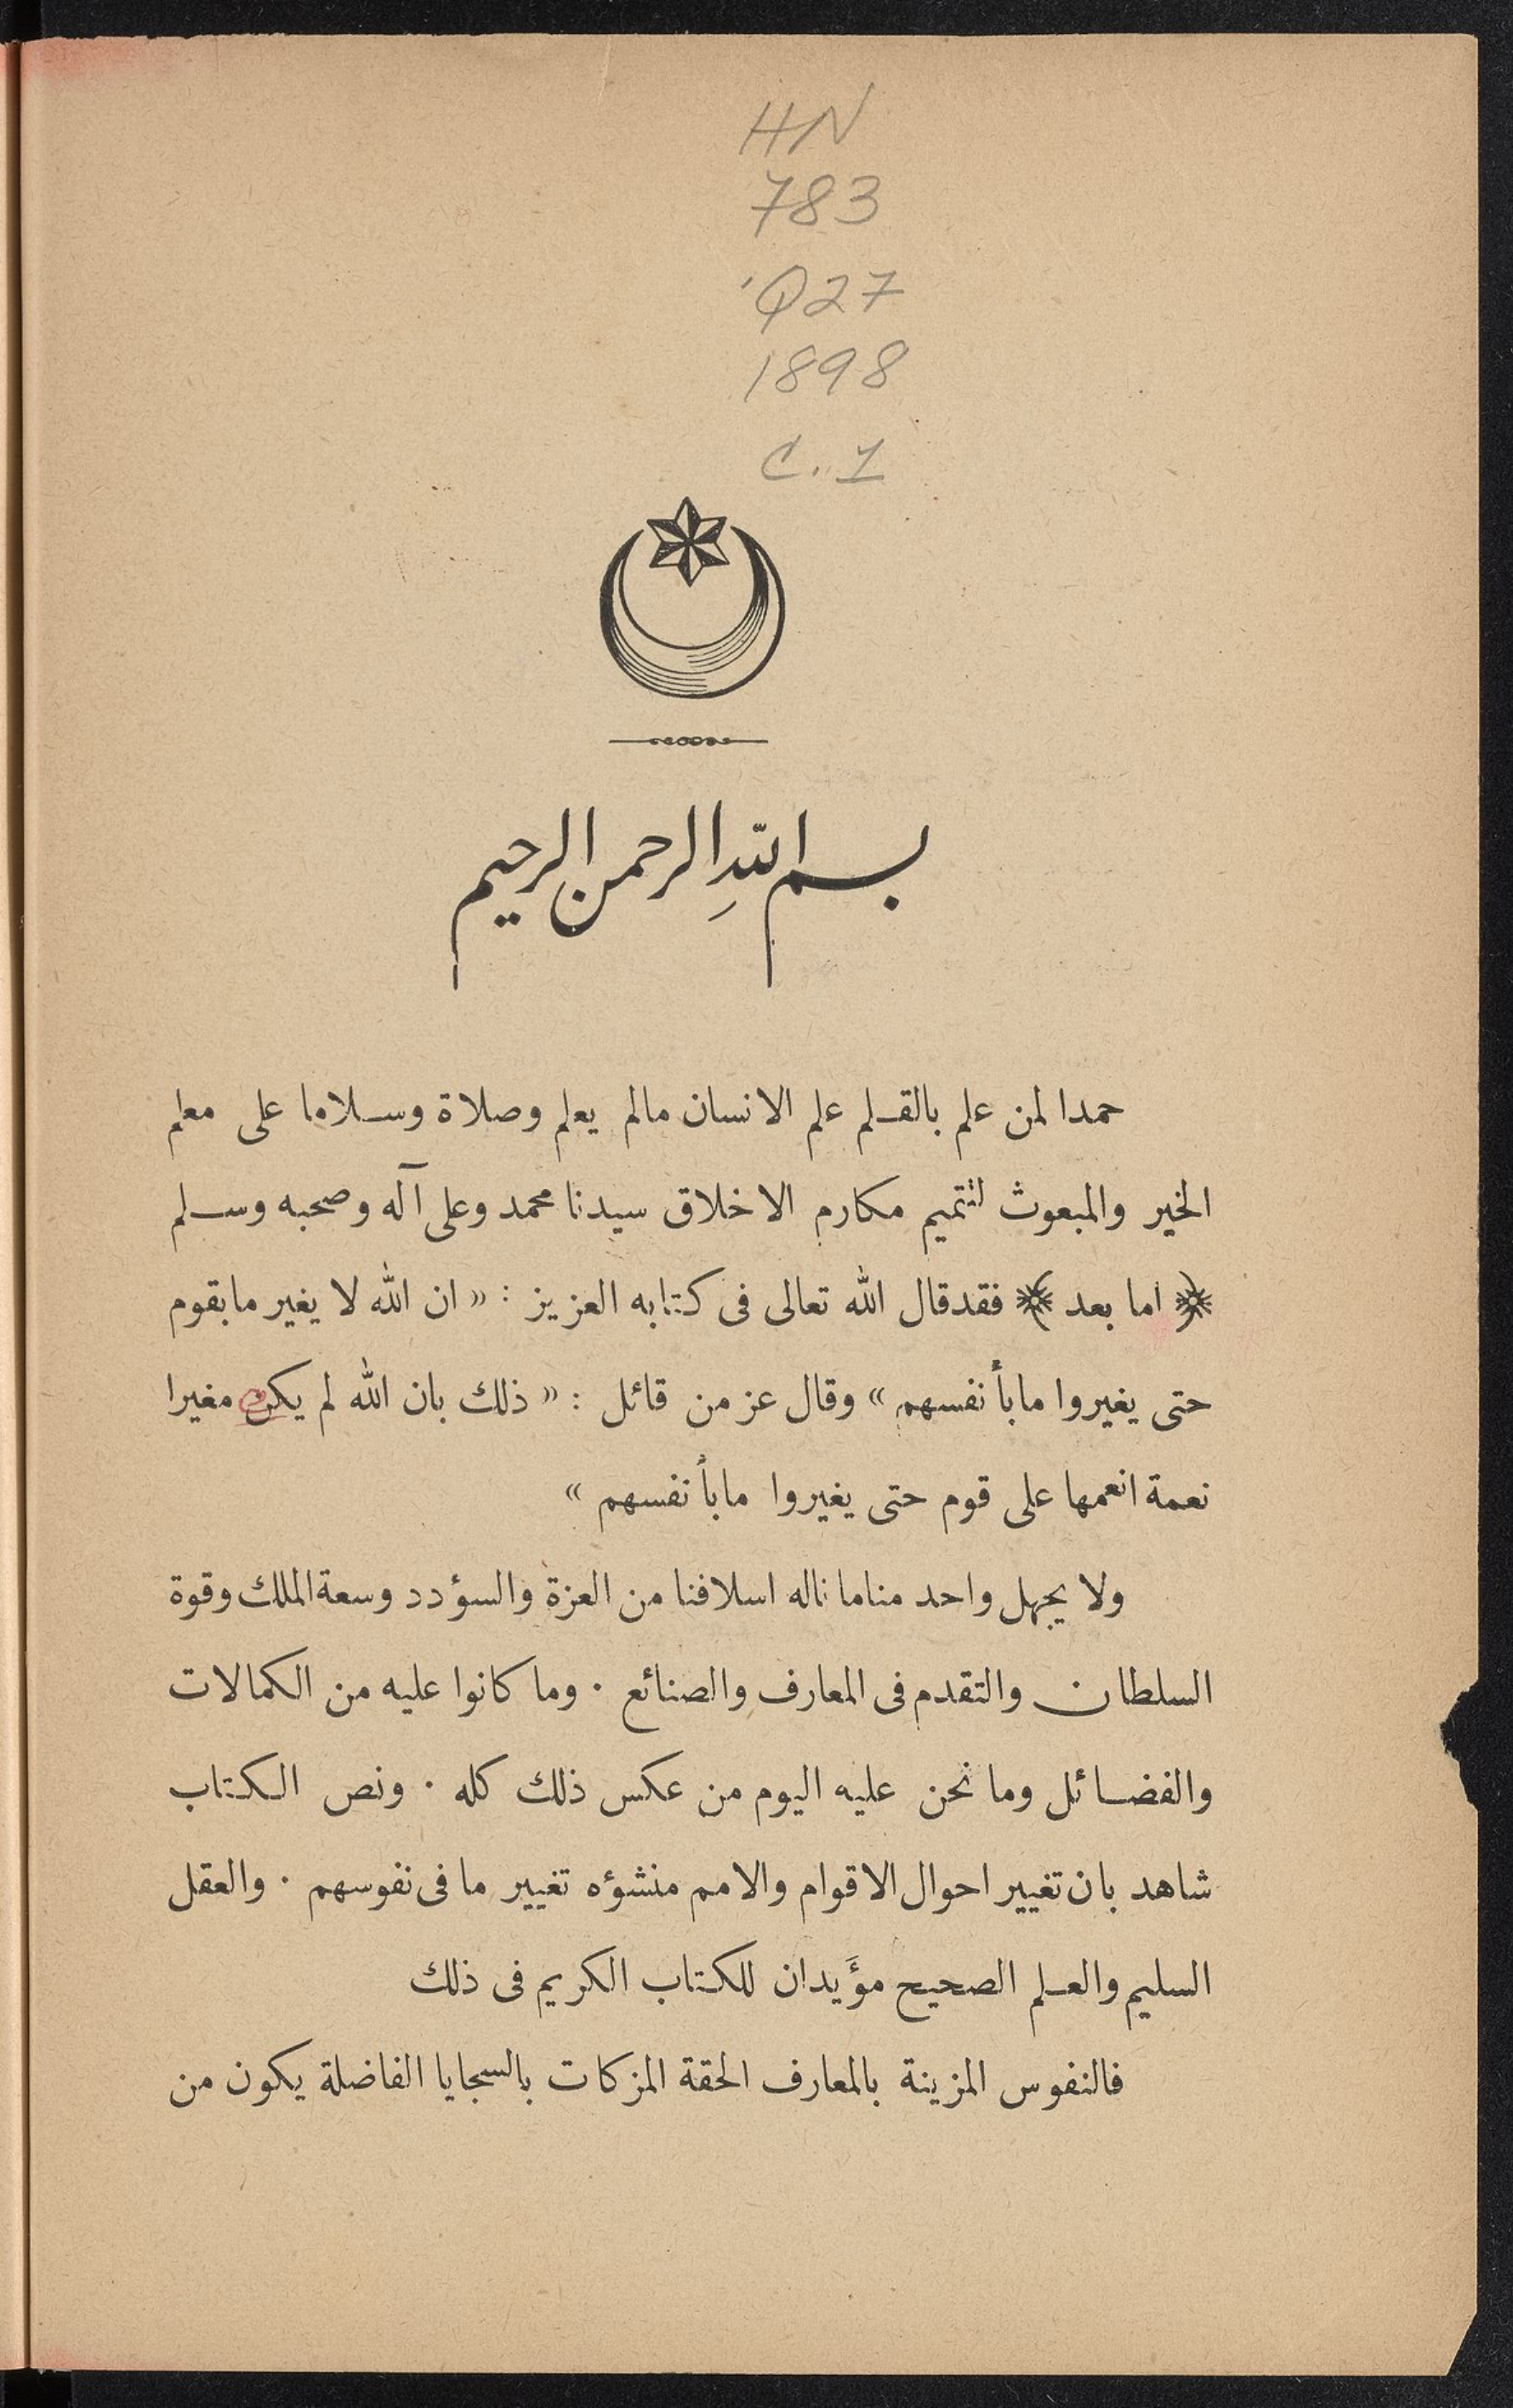 HN
783
.Q27
1898
C. 1
بسم اللهِ الرحمن الرحيم
حمدا لمن علم بالقلم علم الانسان مالم يعلم وصلاة وسلاما على معلم
الخير والمبعوث لتتميم مكارم الاخلاق سيدنا محمد وعلى آله وصحبه وسلم
﴿ اما بعد ﴾ فقد قال الله تعالى فى كتابه العزيز : « ان الله لا يغير ما بقوم
حتى يغيروا ما بأنفسهم » وقال عز من قائل : « ذلك بان الله لم يكن مغيرا
نعمة انعمها على قوم حتى يغيروا ما بأنفسهم »
ولا يجهل واحد منا ما ناله اسلافنا من العزة والسؤدد وسعة الملك وقوة
السلطان والتقدم فى المعارف والصنائع . وما كانوا عليه من الكمالات
والفضائل وما نحن عليه اليوم من عكس ذلك كله . ونص الكتاب
شاهد بان تغيير احوال الاقوام والامم منشؤه تغيير ما فى نفوسهم . والعقل
السليم والعلم الصحيح مؤَيدان للكتاب الكريم فى ذلك
فالنفوس المزينة بالمعارف الحقة المزكات بالسجايا الفاضلة يكون من